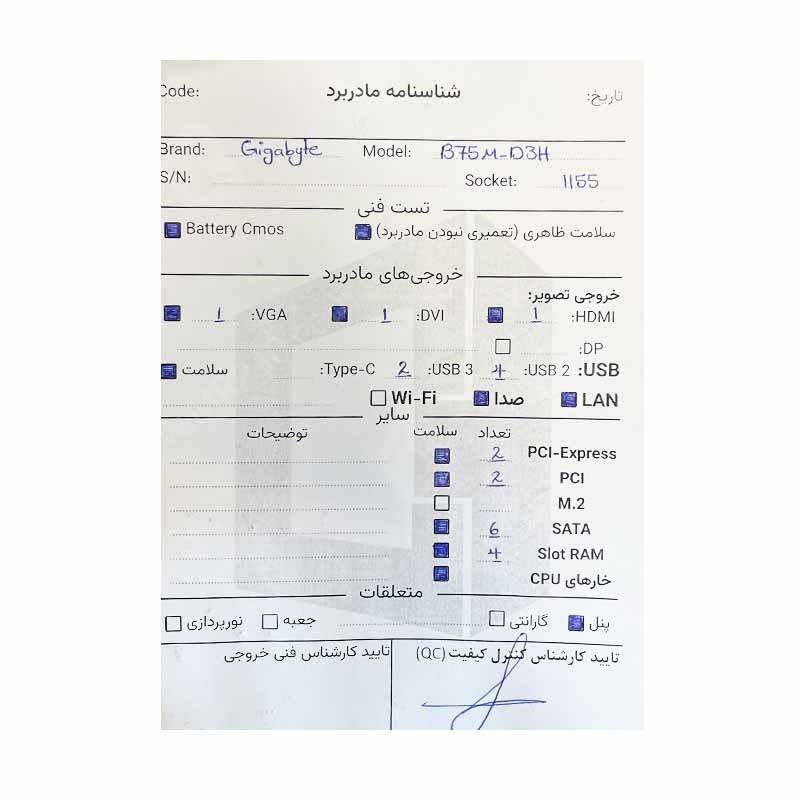 تاریخ: شناسنامه مادربرد Code:
Brand: Gigabyte Model: B75M-D3H
S/N: Socket: 1155
تست فنی
سلامت ظاهری (تعمیری نبودن مادربرد) Battery Cmos
خروجی‌های مادربرد
خروجی تصویر:
HDMI: 1 DVI: 1 VGA: 1
DP:
USB: USB 2: 4 USB 3: 2 Type-C: سلامت
LAN صدا Wi-Fi
سایر
تعداد سلامت توضیحات
PCI-Express 2
PCI 2
M.2
SATA 6
Slot RAM 4
خارهای CPU
متعلقات
پنل گارانتی جعبه نورپردازی
تایید کارشناس کنترل کیفیت (QC) تایید کارشناس فنی خروجی